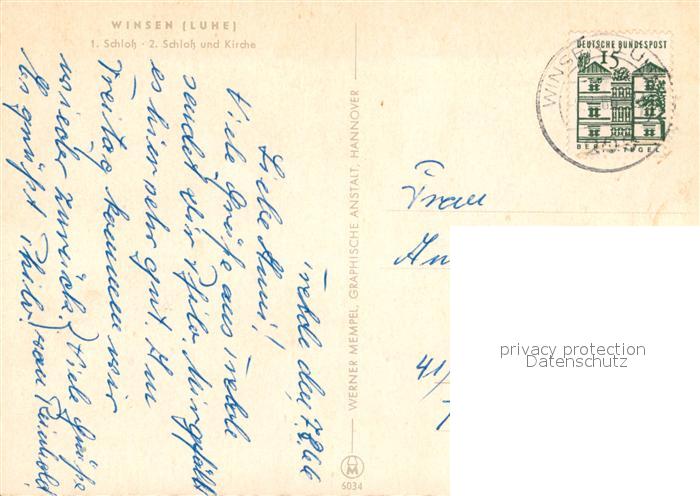 WINSEN (LUHE)
1. Schloß · 2. Schloß und Kirche
den 7.8.66
Liebe Anni!
Viele Grüße aus
sendet dir Philo. Mir gefällt
es hier sehr gut. Am
Freitag kommen wir
wieder zurück.
Es grüßt Philo.
Viele Grüße
von Reinhold
WERNER MEMPEL, GRAPHISCHE ANSTALT, HANNOVER
6034
WINSEN
DEUTSCHE BUNDESPOST
15
BERLIN-TEGEL
Frau
An
41/
privacy protection
Datenschutz